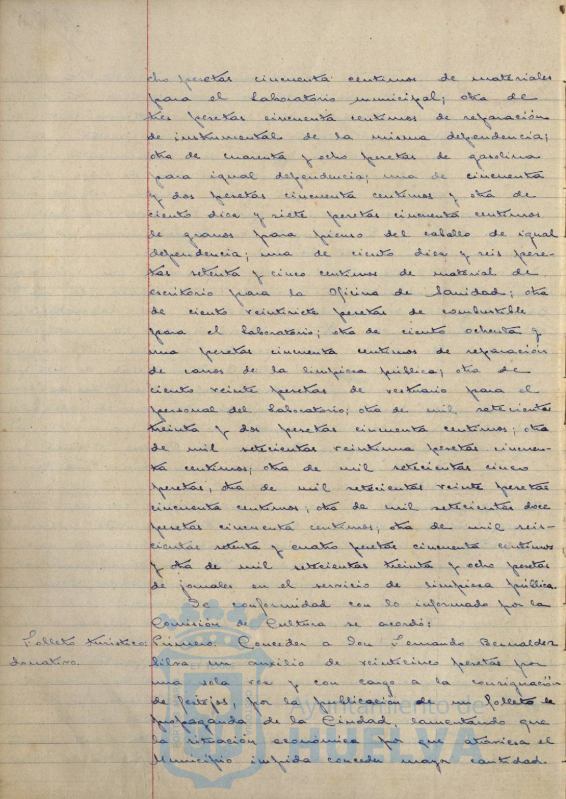 cho pesetas cincuenta centimos de materiales
para el Laboratorio municipal; otra de
tres pesetas cincuenta centimos de reparación
de instrumental de la misma dependencia;
otra de cuarenta y ocho pesetas de gasolina
para igual dependencia; una de cincuenta
y dos pesetas cincuenta centimos y otra de
ciento diez y siete pesetas cincuenta centimos
de granos para pienso del caballo de igual
dependencia; una de ciento diez y seis pese-
tas setenta y cinco centimos de material de
escritorio para la Oficina de Sanidad; otra
de ciento veintisiete pesetas de combustible
para el Laboratorio; otra de ciento ochenta y
una pesetas cincuenta centimos de reparación
de carros de la limpieza pública; otra de
ciento veinte pesetas de vestuario para el
personal del Laboratorio; otra de mil setecientas
treinta y dos pesetas cincuenta centimos; otra
de mil setecientas veintiuna pesetas cincuen-
ta centimos; otra de mil setecientas cinco
pesetas; otra de mil setecientas veinte pesetas
cincuenta centimos; otra de mil setecientas doce
pesetas cincuenta centimos; otra de mil seis-
cientas setenta y cuatro pesetas cincuenta centimos
y otra de mil setecientas treinta y ocho pesetas
de jornales en el servicio de limpieza pública.
De conformidad con lo informado por la
Comisión de Cultura se acordó:
Folleto turistico: Primero: Conceder a Don Fernando Bernaldez
donativo. Silva, un auxilio de veinticinco pesetas por
una sola vez y con cargo a la consignación
de festejos, por la publicación de un folleto de
propaganda de la Ciudad, lamentando que
la situación económica por que atraviesa el
Municipio impida conceder mayor cantidad.
Ayuntamiento de
HUELVA